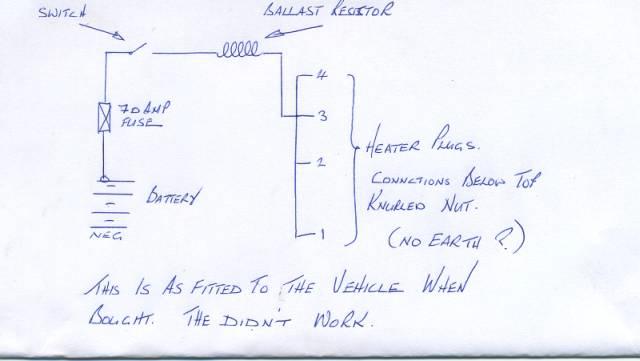 SWITCH
BALLAST RESISTOR
4
70 AMP
FUSE
3
HEATER PLUGS.
2
CONNCTIONS BELOW TOP
BATTERY
KNURLED NUT.
NEG
1
(NO EARTH ?)
THIS IS AS FITTED TO THE VEHICLE WHEN
BOUGHT. THE DIDN'T WORK.